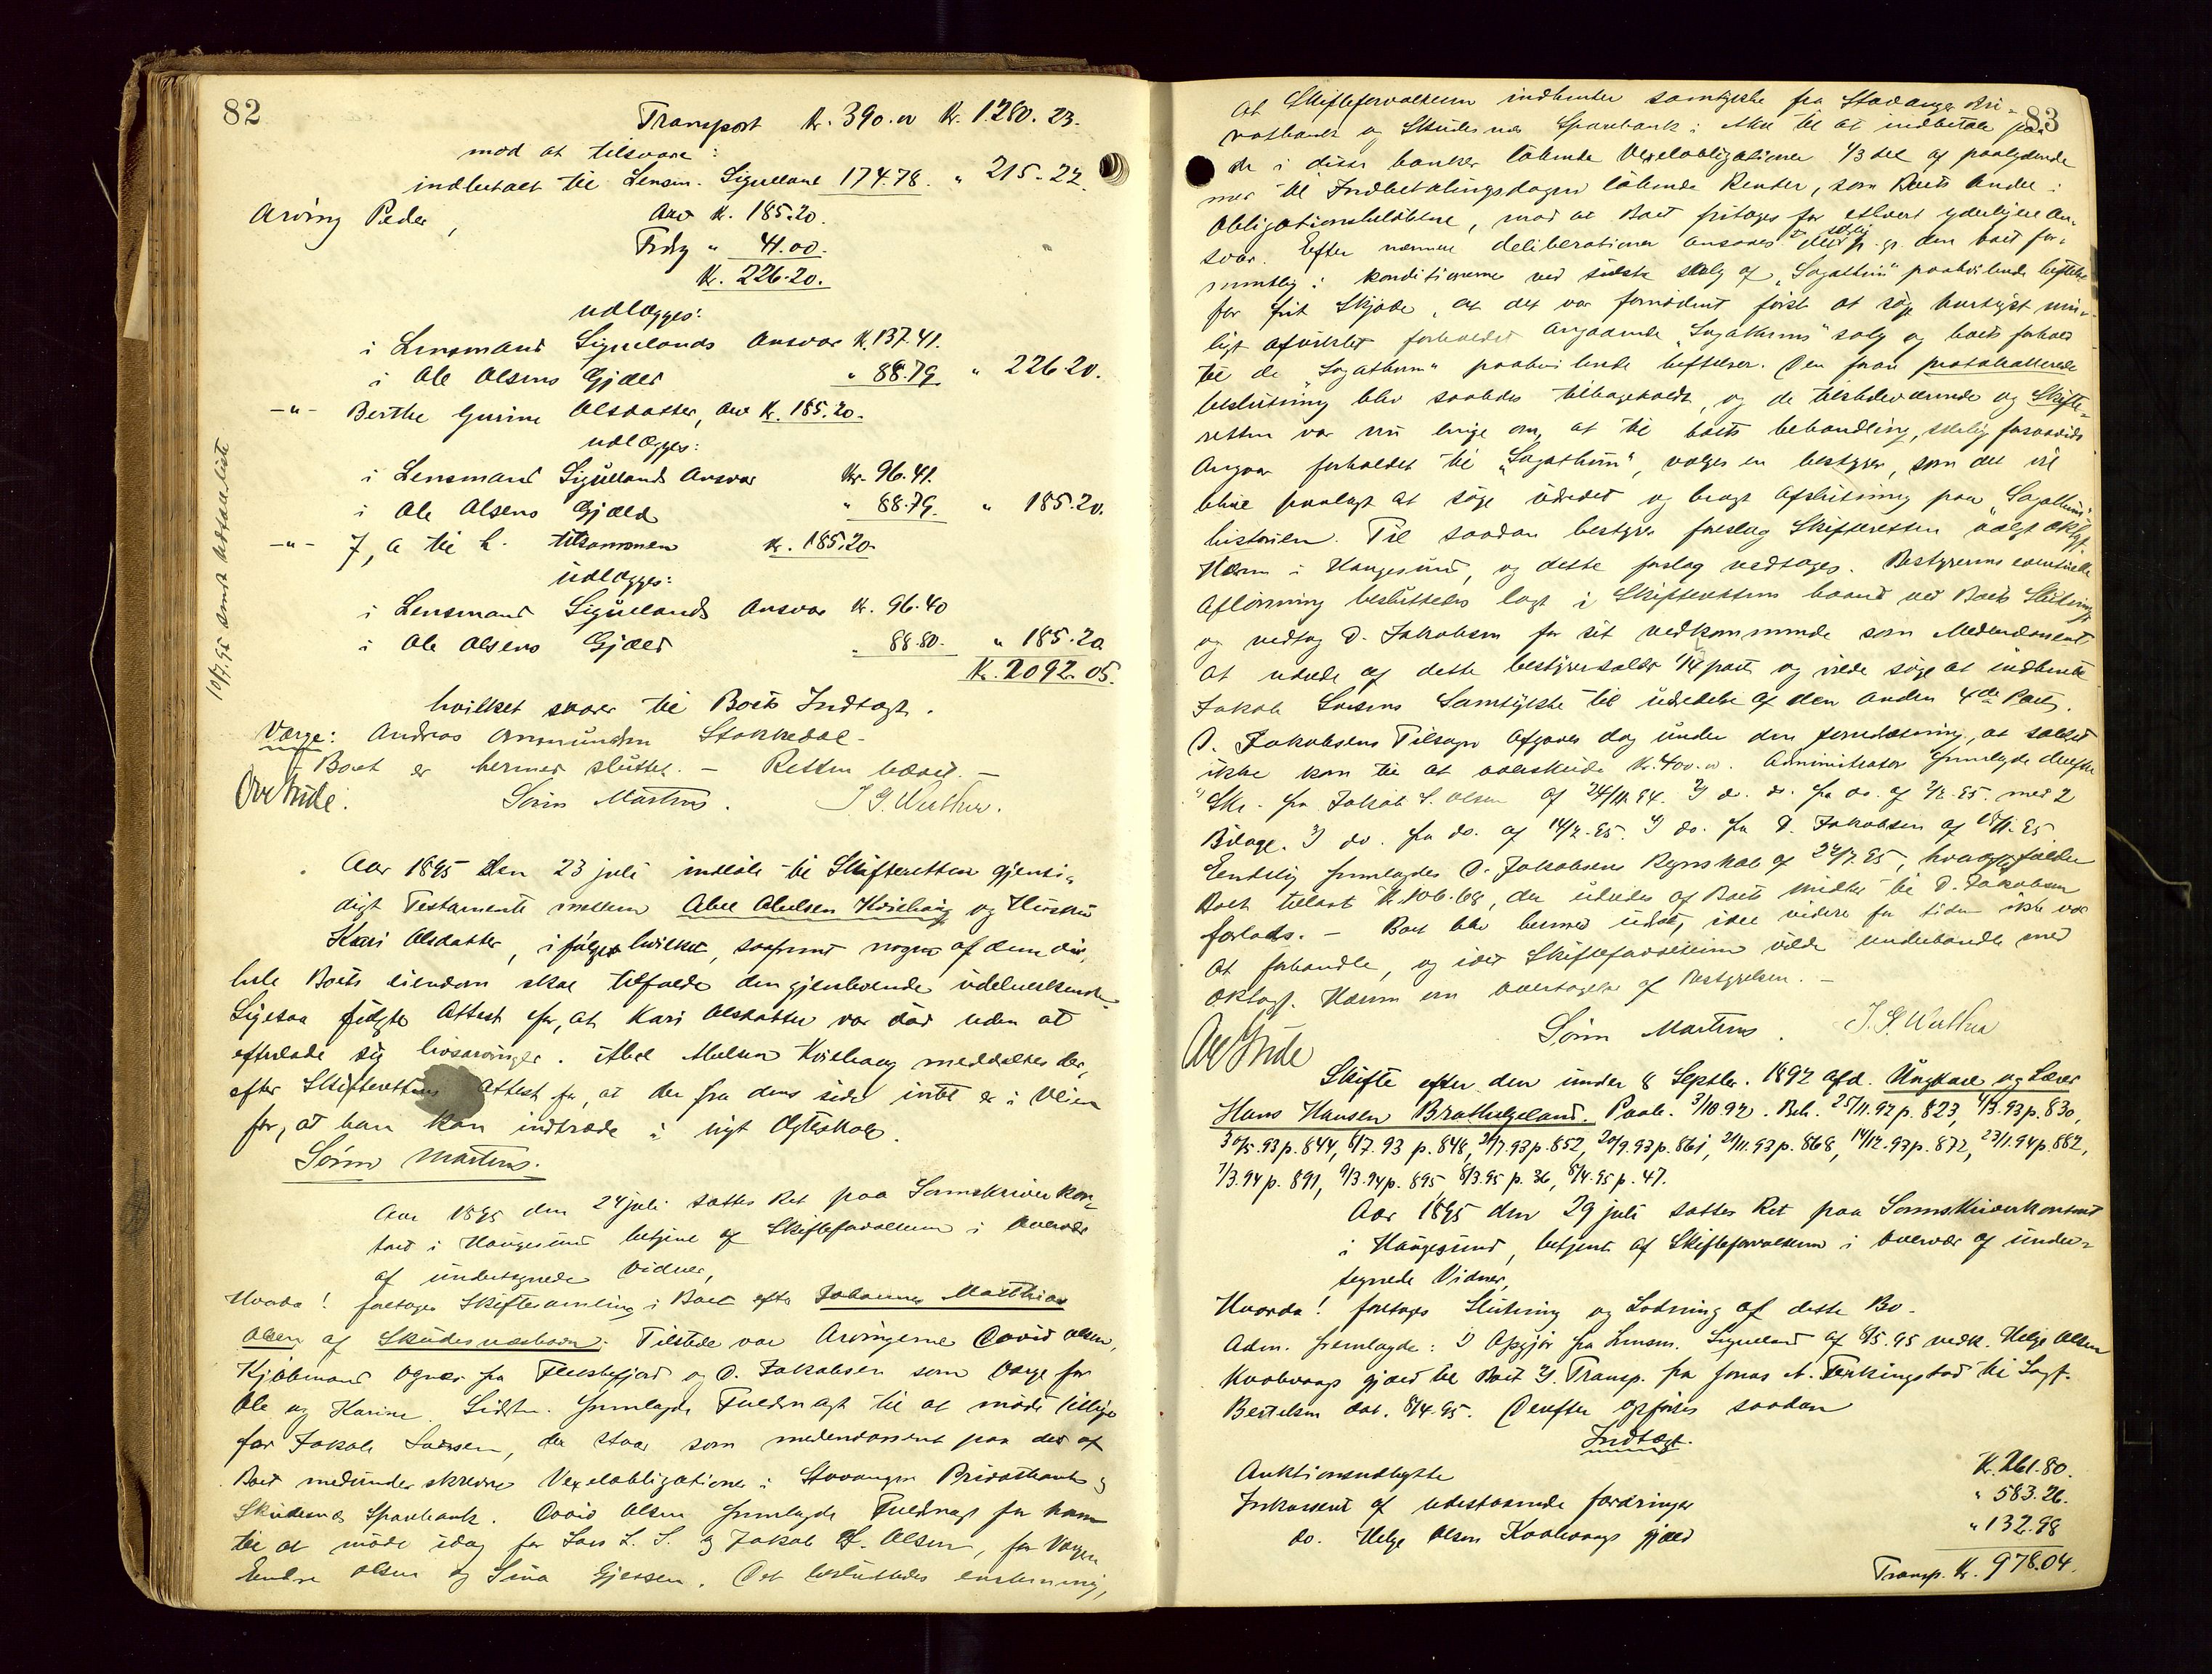 82
Transport Kr. 390.00 Kr. 1280.23.
mod at tilsvare:
indbetalt til Lensm. Liguelland 174.78. " 215.22.
Arving Peder, Arv K. 185.20.
" 41.00.
Kr. 226.20.
udlægges:
i Lensmand Liguelands Ansvar K. 137.41.
i Ole Olsens Gjæld " 88.79 " 226.20.
-"- Berthe Gurine Olsdatter, Arv Kr. 185.20.
udlægges:
i Lensmand Liguelland Ansvar Kr. 96.41.
i Ole Olsens Gjæld " 88.79. " 185.20.
-"- 7, a til h. tilsammen Kr. 185.20.
udlægges:
i Lensmand Liguelands Ansvar K. 96.40
i Ole Olsens Gjæld " 88.80. " 185.20
Kr. 2092.05.
hvilket svarer til Boets Indtægt.
Værge: Andreas Ommundsen Stokkedal.
Boet er hermed sluttet. - Retten hævet. -
Ove Inde. Sören Martens. J. G. Wuthus.
10/7.95 sendt Udsalsliste
Aar 1895 den 23 juli indlöb til Skifteretten gjensi-
digt Testamente mellem Abel Abelsen Kvilhaug og Hustru
Kari Olsdatter, ifölge hvilket, saafremt nogen af dem dör,
hele Boets eiendom skal tilfalde den gjenlevende udelukkende.
Ligesaa fulgte Attest for, at Kari Olsdatter var död uden at
efterlade sig livsarvinger. Abel Abelsen Kvilhaug meddeltes der-
efter Skifterettens Attest for, at der fra dens side intet er i Veien
for, at han kan indtræde i nyt Ægteskab.
Sören Martens.
Aar 1895 den 24 juli sattes Ret paa Sorenskriverkon-
toret i Haugesund betjent af Skifteforvalteren i Overvær
af undertegnede Vidner,
Hvorda! foretages Skiftesamling i Boet efter Johannes Matthias
Olsen af Skudesneshavn. Tilstede var Arvingerne David Olsen,
Kjöbmand fra Flekkefjord og D. Jakobsen som Værge for
Ole og Karine. Sidstn. fremlagde Fuldmagt til at möde tillige
for Jakob Larsen, der staar som medendossent paa det af
Boet medunderskrevne Vexelobligationer i Stavanger Privatbank og
Skudesnes Sparebank. David Olsen fremlagde Fuldmagt for ham
til at möde idag for Lars L. S. og Jakob S. Olsen, for Værgen
Endre Olsen og Sina Gjersen. Det besluttedes enstemmig,
83
at Skifteforvalteren indhenter samtykke fra Stavanger Pri-
vatbank og Skudesnes Sparebank i Aker til at indbetale paa
de i disse banker löbende Vexelobligationer 1/3 del af paalydende
mer til Indbetalingsdagen löbende Renter, som Boets Andel i
Obligationsbelöbene, mod at Boet fritages for ethvert yderligere An-
svar. Efter nærmere deliberationer ansaaes det særlig p. gr. den boet for-
muntlig i konditionerne ved sidste salg af "Sagathun" paahvilende heftelse
for frit Skjöde, at det var fornödent först at söge hurtigst mu-
ligt afviklet forholdet angaaende "Sagathuns" salg og boets forhold
til de "Sagathun" paahvilende heftelser. Den foran protokollerede
beslutning blev saaledes tilbagekaldt, og de tilstedeværende og Skifte-
retten var nu enige om, at til boets behandling, særlig forsaavidt
Angaar forholdet til "Sagathun", vælges en bestyrer, som det vil
blive paalagt at söge udredet og bragt Afslutning paa "Sagathun"
historien. Til saadan bestyrer foreslog Skifteretten valgt oksagf.
Hærem i Haugesund, og dette forslag vedtages. Bestyrerens eventuelle
Aflönning besluttedes lagt i Skifterettens haand ved Boets Slutning,
og vedtog D. Jakobsen for sit vedkommende som Medendossent
at udrede af dette bestyrersalær 1/4 part og vilde söge at indhente
Jakob Larsens Samtykke til udredelse af den anden 4de Part.
D. Jakobsens Tilsagn afgaves dog under den forudsætning, at salæret
ikke kom til at overskride Kr. 400.00. Administrator fremlagde derefter
1) Skr. fra Jakob S. Olsen af 24/11.94. 2) do. do. fra do. af 2/2.95. med 2
Bilage. 3) do. fra do. af 14/2.95. 4) do. fra D. Jakobsen af 18/1.95
Endelig fremlagdes D. Jakobsens Regnskab af 24/7.95, hvorefter
Boet tillagt Kr. 106.68, der udredes af Boets Midler til D. Jakobsen
forlods. - Boet blev hermed udsat, idet videre for tiden ikke var
at forhandle, og idet Skifteforvalteren vilde underhandle med
oksagf. Hærem om overtagelse af Bestyrelsen. -
Sören Martens. J. G. Wuthus
Ove Inde
Skifte efter den under 8 Septbr. 1892 afd. Ungkarl og Lærer
Hans Hansen Bratthelgeland. Paab. 3/10 92. Beh. 25/11.92 p. 823, 4/3.93 p. 830,
30/5.93 p. 844, 6/7.93 p. 848, 21/7.93 p. 852, 20/9.93 p. 861, 21/11.93 p. 868, 14/12.93 p. 872, 23/1.94 p. 882,
7/3.94 p. 891, 9/3.94 p. 895, 8/3.95 p. 36, 8/4.95 p. 47.
Aar 1895 den 29 juli sattes Ret paa Sorenskriverkontoret
i Haugesund, betjent af Skifteforvalteren i overvær af under-
tegnede Vidner,
Hvorda! foretages Slutning og Lodning af dette Bo.
Adm. fremlagde: 1) Opgjör fra Lensm. Ligueland af 8/5.95 vedk. Helge Olsen
Kvalavaags gjæld til Boet 2) Transp. fra Jonas A. Ferkingstad til Sagf.
Bertelsen dat. 8/4.95. Derefter opföres saadan
Indtægt.
Auktionsudbytte K. 261.80.
Inkasseret af udestaaende fordringer " 583.26.
do. Helge Olsen Kvalavaags gjæld " 132.98
Transp. Kr. 978.04.